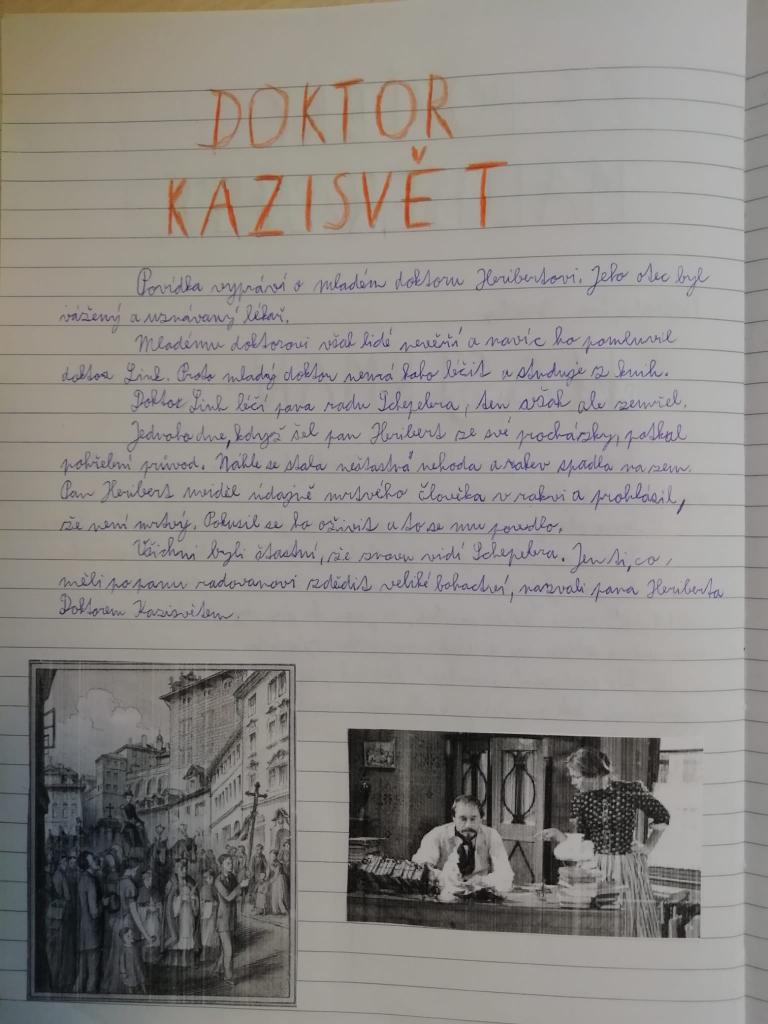 DOKTOR
KAZISVĚT
Povídka vypráví o mladém doktoru Heribertovi. Jeho otec byl
vážený a uznávaný lékař.
Mladému doktorovi však lidé nevěří a navíc ho pomluvil
doktor Link. Proto mladý doktor nemá koho léčit a studuje z knih.
Doktor Link léčí pana radu Schepelera, ten však ale zemřel.
Jednoho dne, když šel pan Heribert ze své procházky, potkal
pohřební průvod. Náhle se stala nešťastná nehoda a rakev spadla na zem.
Pan Heribert uviděl údajně mrtvého člověka v rakvi a prohlásil,
že není mrtvý. Pokusil se ho oživit a to se mu povedlo.
Všichni byli šťastní, že znovu vidí Schepelera. Jen ti, co
měli po panu radovanovi zdědit veliké bohactví, nazvali pana Heriberta
Doktorem Kazisvětem.